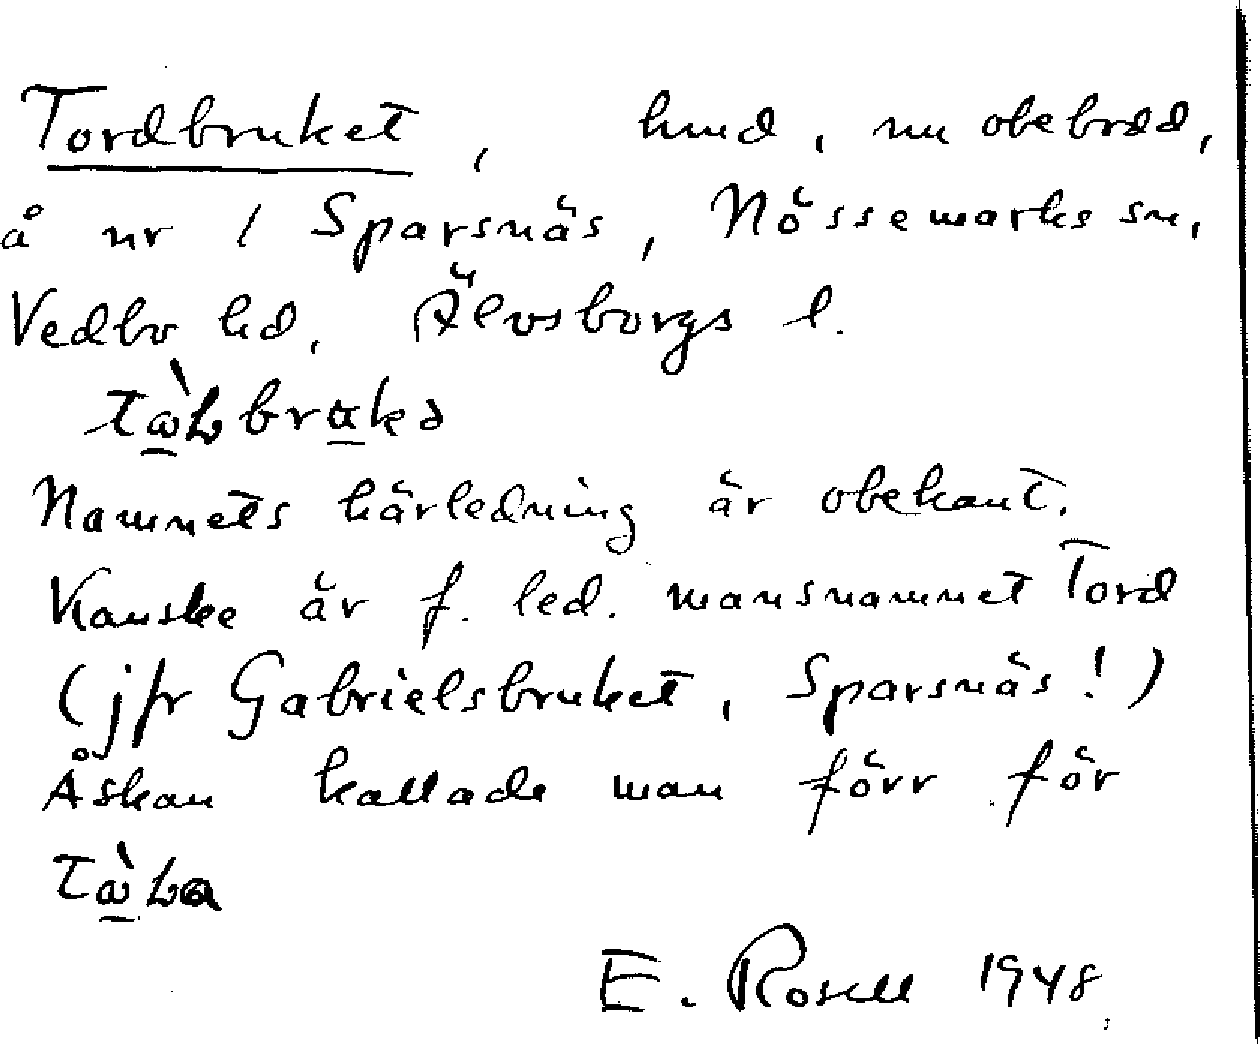 Tordbruket, hmd, nu obebodd,
å nr 1 Sparsnäs, Nössemarks sn,
Vedbo hd, Älvsborgs l.
Namnets härledning är obekant.
Kanske är f. led. mansnamnet Tord
(jfr Gabrielsbruket, Sparsnäs!)
Åskan kallade man förr för
E. Rosell 1948